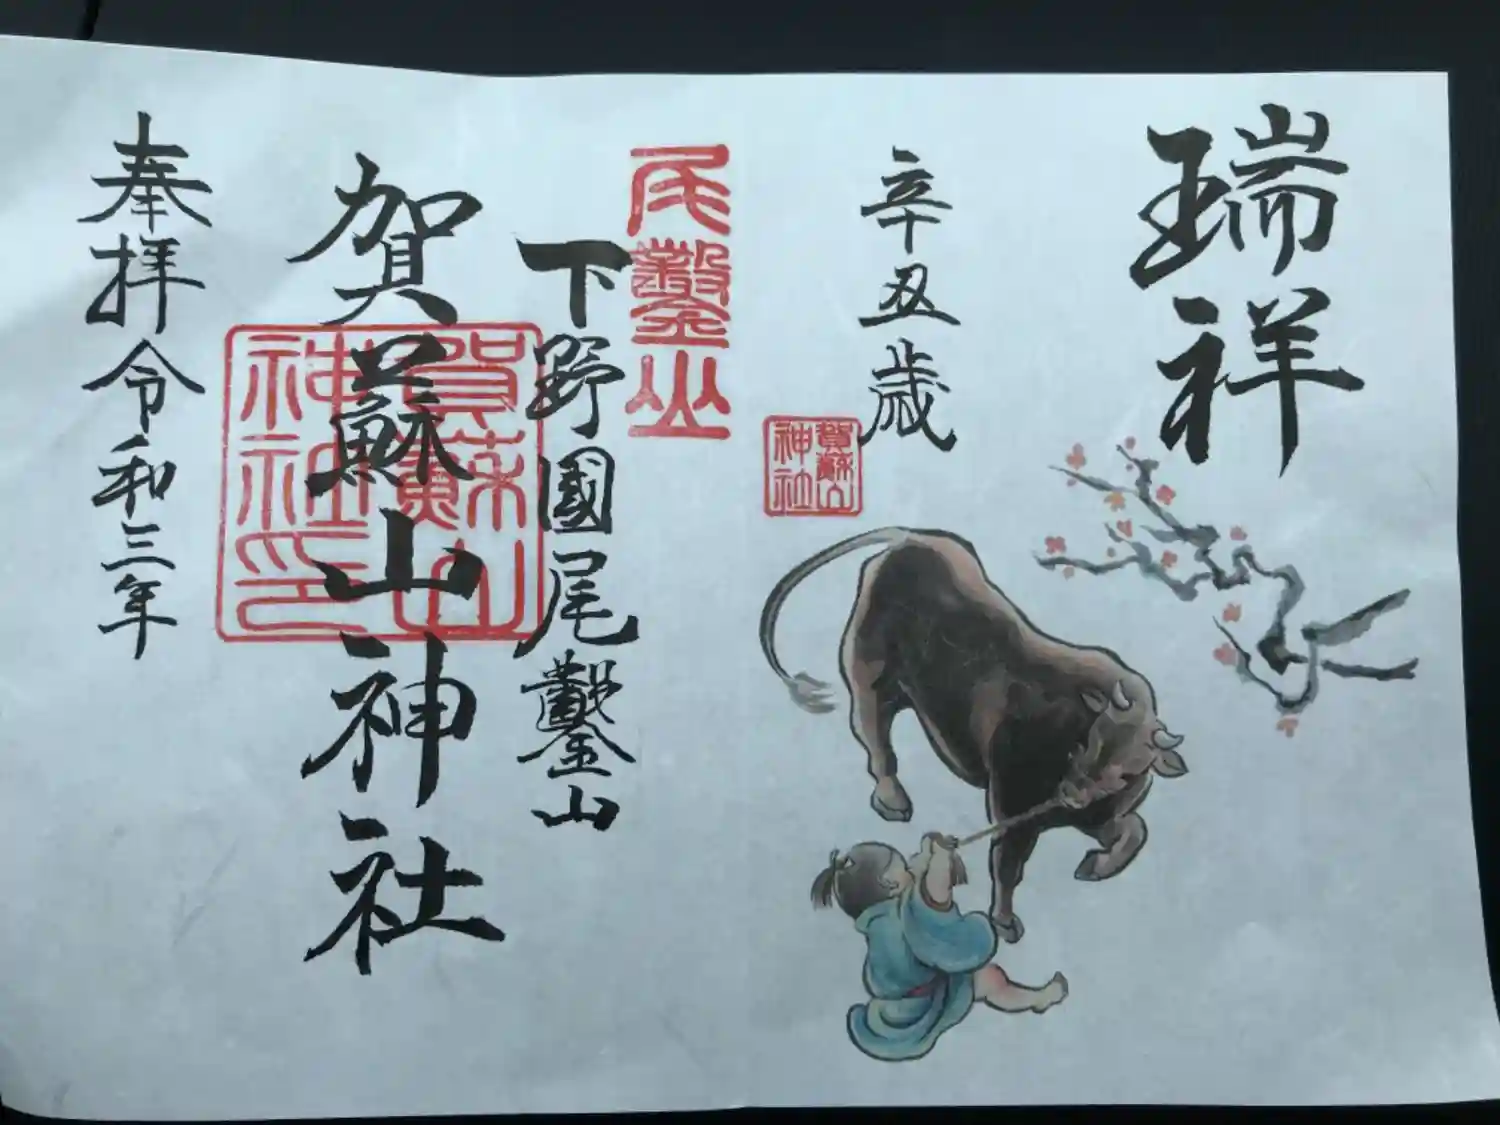 瑞祥
辛丑歳
賀蘇山
神社
尾鑿山
下野國尾鑿山
賀蘇山神社
賀蘇山
神社印
奉拝令和三年